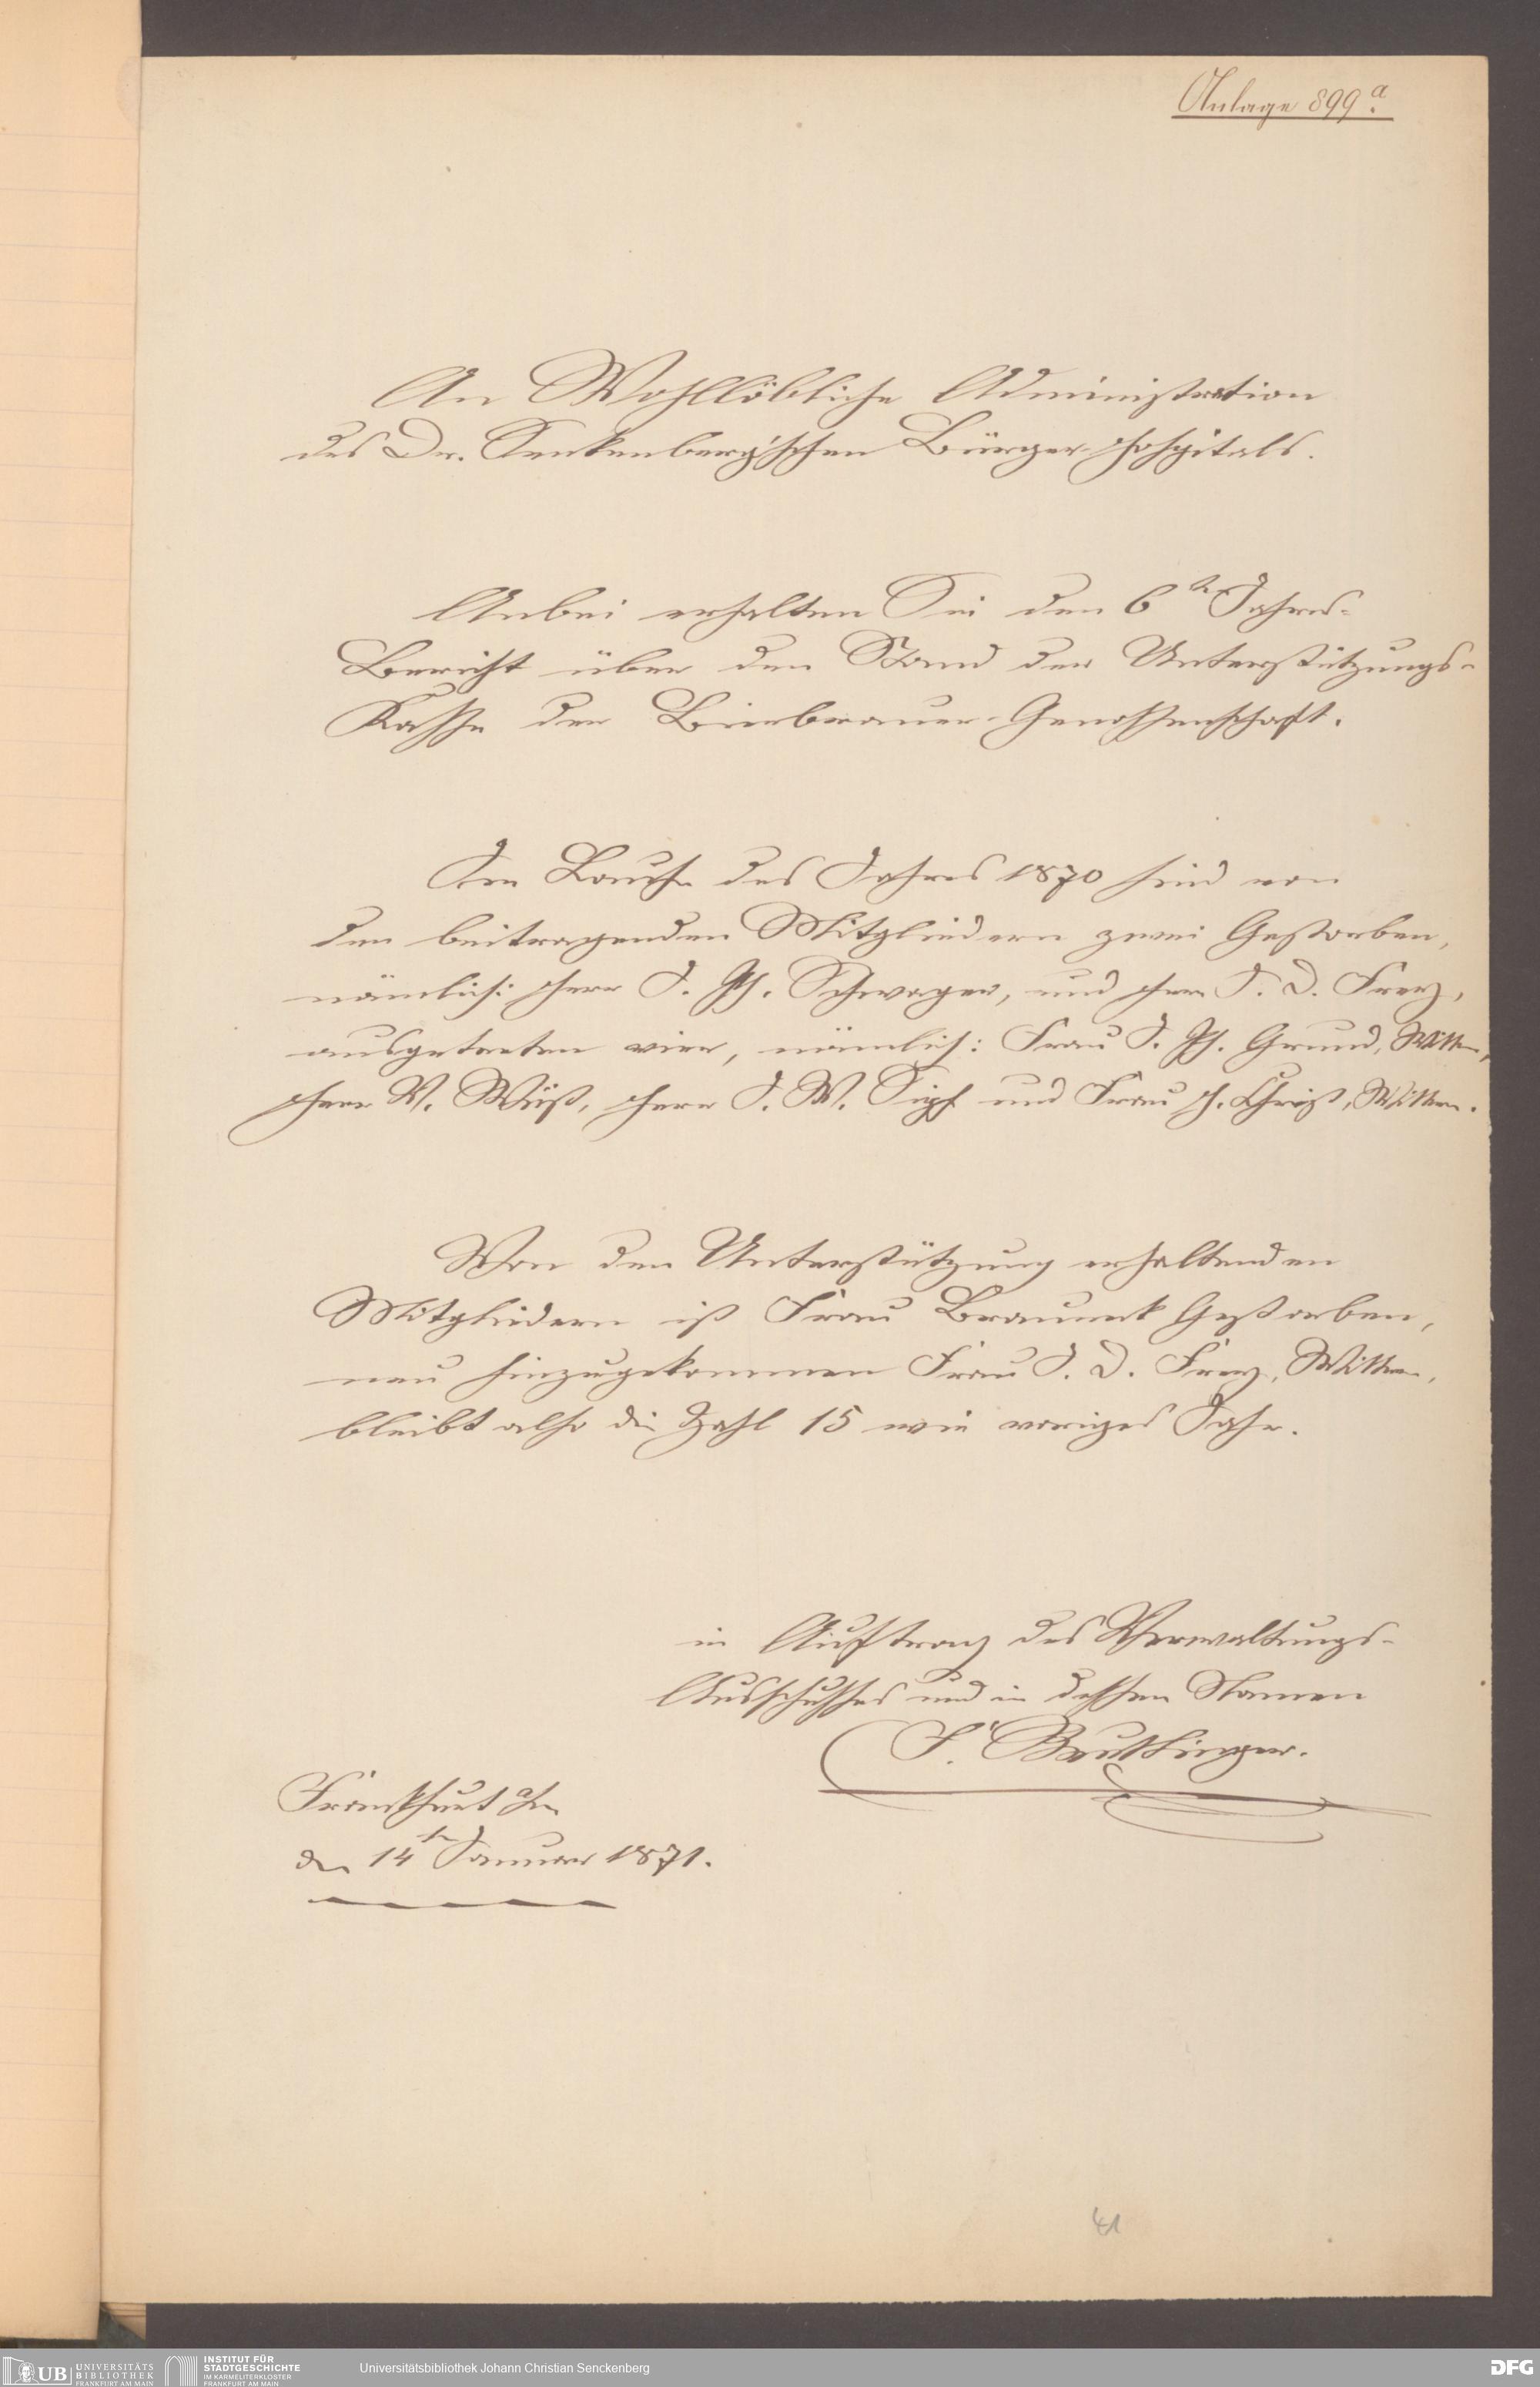 Anlage 899a.
An Wohllöbliche Administration
des Dr. Senkenberg'schen Bürger-Hospitals.
Anbei erhalten Sie den 6ten Jahres-
Bericht über den Stand der Unterstützungs-
Kasse der Bierbrauer-Genossenschaft.
Im Laufe des Jahres 1870 sind von
den beitragenden Mitgliedern zwei Gestorben,
nämlich: Herr J. Ph. Schwager, und Herr J. D. Frey,
ausgetreten vier, nämlich: Frau J. Ph. Grund, Wittwe,
Herr V. Wüst, Herr J. W. und Frau H. Christ, Wittwe.
Von den Unterstützung erhaltenden
Mitgliedern ist Frau Brauneck Gestorben,
neu hinzugekommen Frau J. D. Frey, Wittwe,
bleibt also die Zahl 15 wie voriges Jahr.
in Auftrag des Verwaltungs-
Ausschusses und in dessen Namen
Frankfurt a/m
den 14ten Januar 1871.
41
UB UNIVERSITÄTS BIBLIOTHEK FRANKFURT AM MAIN
INSTITUT FÜR STADTGESCHICHTE IM KARMELITERKLOSTER FRANKFURT AM MAIN
Universitätsbibliothek Johann Christian Senckenberg
DFG